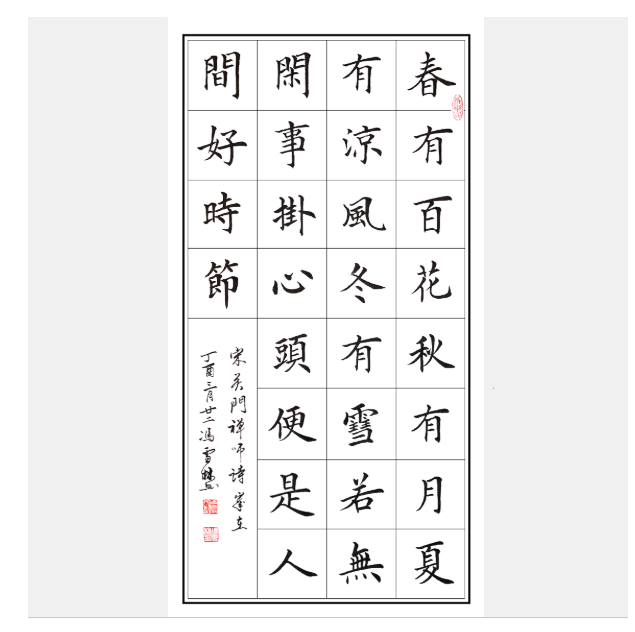 春有百花秋有月夏
有涼風冬有雪若無
閑事掛心頭便是人
間好時節
宋吴門禅師诗峯立
丁酉三月廿二馮雪梅